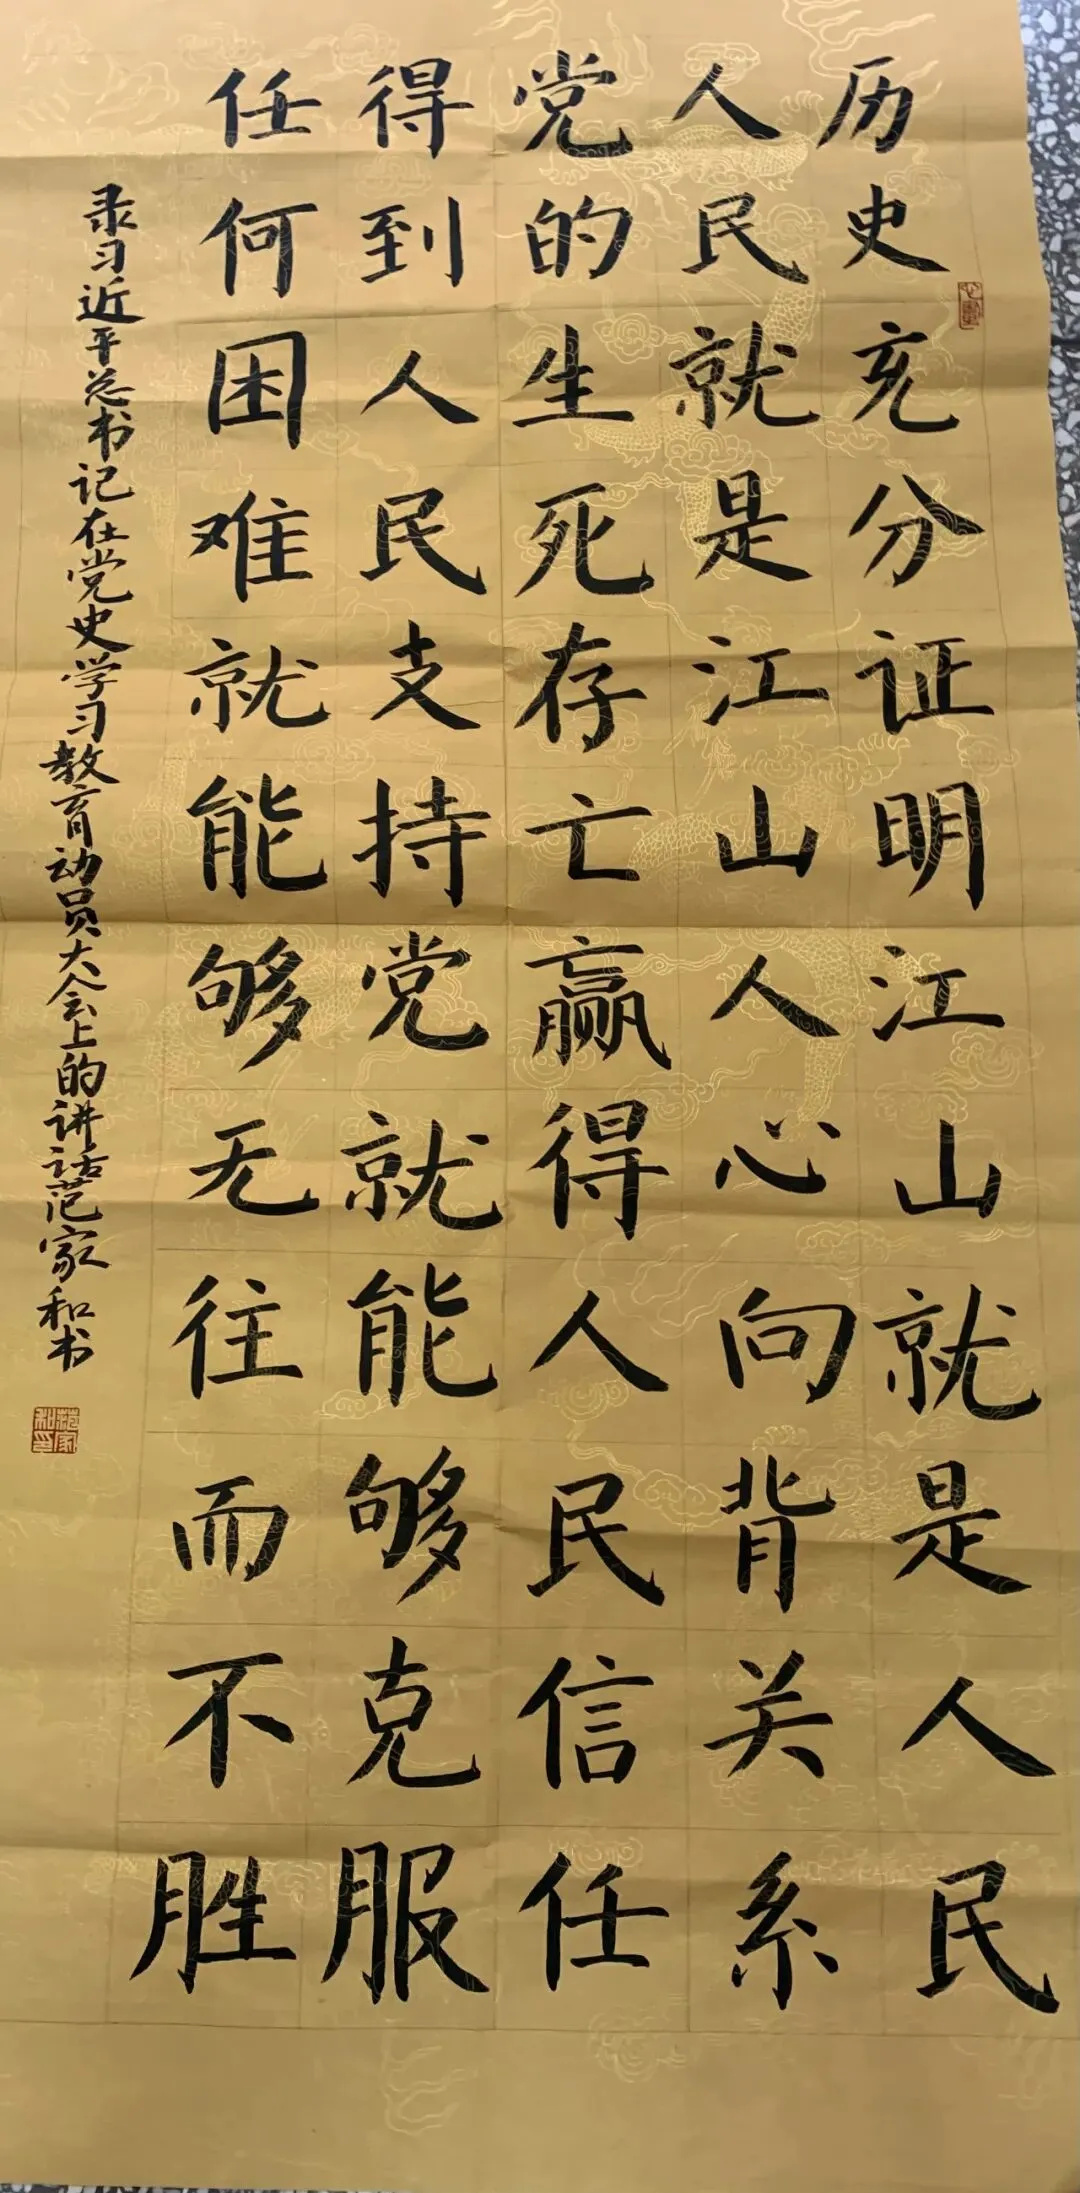 历史充分证明江山就是人民
人民就是江山人心向背关系
党的生死存亡赢得人民信任
得到人民支持党就能够克服
任何困难就能够无往而不胜
录习近平总书记在党史学习教育动员大会上的讲话范家和书
范家和印